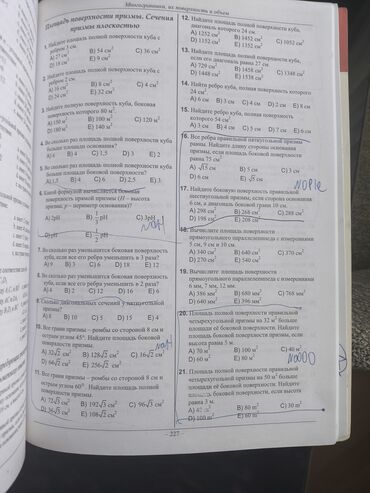 Многогранники, их поверхность и объем
Площадь поверхности призмы. Сечения
призмы плоскостью
1. Найдите площадь полной поверхности куба с
ребром 3 см.
A) 27 см² B) 54 см² C) 36 см²
D) 18 см² E) 9 см²
2. Найдите площадь полной поверхности куба с
ребром 2 см.
A) 16 см² B) 8 см² C) 4 см²
D) 24 см² E) 32 см²
3. Найдите полную поверхность куба, боковая
поверхность которого 80 м².
A) 150 м² B) 100 м² C) 120 м²
D) 180 м² E) 140 м²
4. Во сколько раз площадь полной поверхности куба
больше площади основания?
A) 6 B) 4 C) 1,5 D) 3 E) 2
5. Во сколько раз площадь полной поверхности куба
больше площади боковой поверхности?
A) 1,5 B) 4 C) 6 D) 2,5 E) 3
6. Какой формулой вычисляется боковая
поверхность прямой призмы (H – высота
призмы, p – периметр основания)?
A) 2pH B) 1/2 pH C) 3pH
D) pH E) 1/3 pH
7. Во сколько раз уменьшится боковая поверхность
куба, если все его ребра уменьшить в 3 раза?
A) 9 B) 3 C) 6 D) 18 E) 12
8. Во сколько раз уменьшится боковая поверхность
куба, если все его ребра уменьшить в 2 раза?
A) 4 B) 2 C) 6 D) 16 E) 8
9. Сколько диагональных сечений у пятиугольной
призмы?
A) 8 B) 10 C) 5 D) 15 E) 4
10. Все грани призмы – ромбы со стороной 8 см и
острым углом 45°. Найдите площадь боковой
поверхности призмы.
A) 32√2 см² B) 128√2 см² C) 16√2 см²
D) 64√2 см² E) 256√2 см²
11. Все грани призмы – ромбы со стороной 8 см и
острым углом 60°. Найдите площадь полной
поверхности призмы.
A) 72√3 см² B) 192√3 см² C) 96√3 см²
D) 36√3 см² E) 108√2 см²
12. Найдите площадь полной поверхности куба,
диагональ которого 24 см.
A) 1252 см² B) 3452 см² C) 1052 см²
D) 1152 см² E) 1352 см²
13. Найдите площадь полной поверхности куба,
если его диагональ равна 27 см.
A) 729 см² B) 1458 см² C) 1348 см²
D) 1448 см² E) 1538 см²
14. Найти ребро куба, полная поверхность которого
24 см².
A) 6 см B) 3 см C) 4 см D) 2 см E) 8 см
15. Найдите ребро куба, полная поверхность
которого 54 см².
A) 3 см B) 4 см C) 5 см D) 7 см E) 6 см
16. Все ребра правильной пятиугольной призмы
равны. Найдите длину стороны основания
призмы, если площадь боковой поверхности
равна 75 см².
A) √15 см B) 5 см C) 3 см
D) 6 см E) √5 см
17. Найдите боковую поверхность правильной
шестиугольной призмы, если сторона основания
6 см, а диагональ боковой грани 10 см.
A) 298 см² B) 268 см² C) 288 см²
D) 198 см² E) 208 см²
18. Вычислите площадь поверхности
прямоугольного параллелепипеда с измерениями
5 см, 9 см и 10 см.
A) 340 см² B) 640 см² C) 370 см²
D) 270 см² E) 540 см²
19. Вычислить площадь поверхности
прямоугольного параллелепипеда с измерениями
6 мм, 7 мм, 12 мм.
A) 386 мм² B) 680 мм² C) 768 мм²
D) 640 мм² E) 396 мм²
20. Площадь полной поверхности правильной
четырехугольной призмы на 32 м² больше
площади её боковой поверхности. Найдите
площадь боковой поверхности призмы, если
высота равна 5 м.
A) 70 м² B) 100 м² C) 40 м²
D) 60 м² E) 80 м²
21. Площадь полной поверхности правильной
четырехугольной призмы на 50 м² больше
площади её боковой поверхности. Найдите
площадь боковой поверхности, если высота
равна 3 м.
B) 80 м² C) 30 м²
D) 100 м² E) 60 м²
227